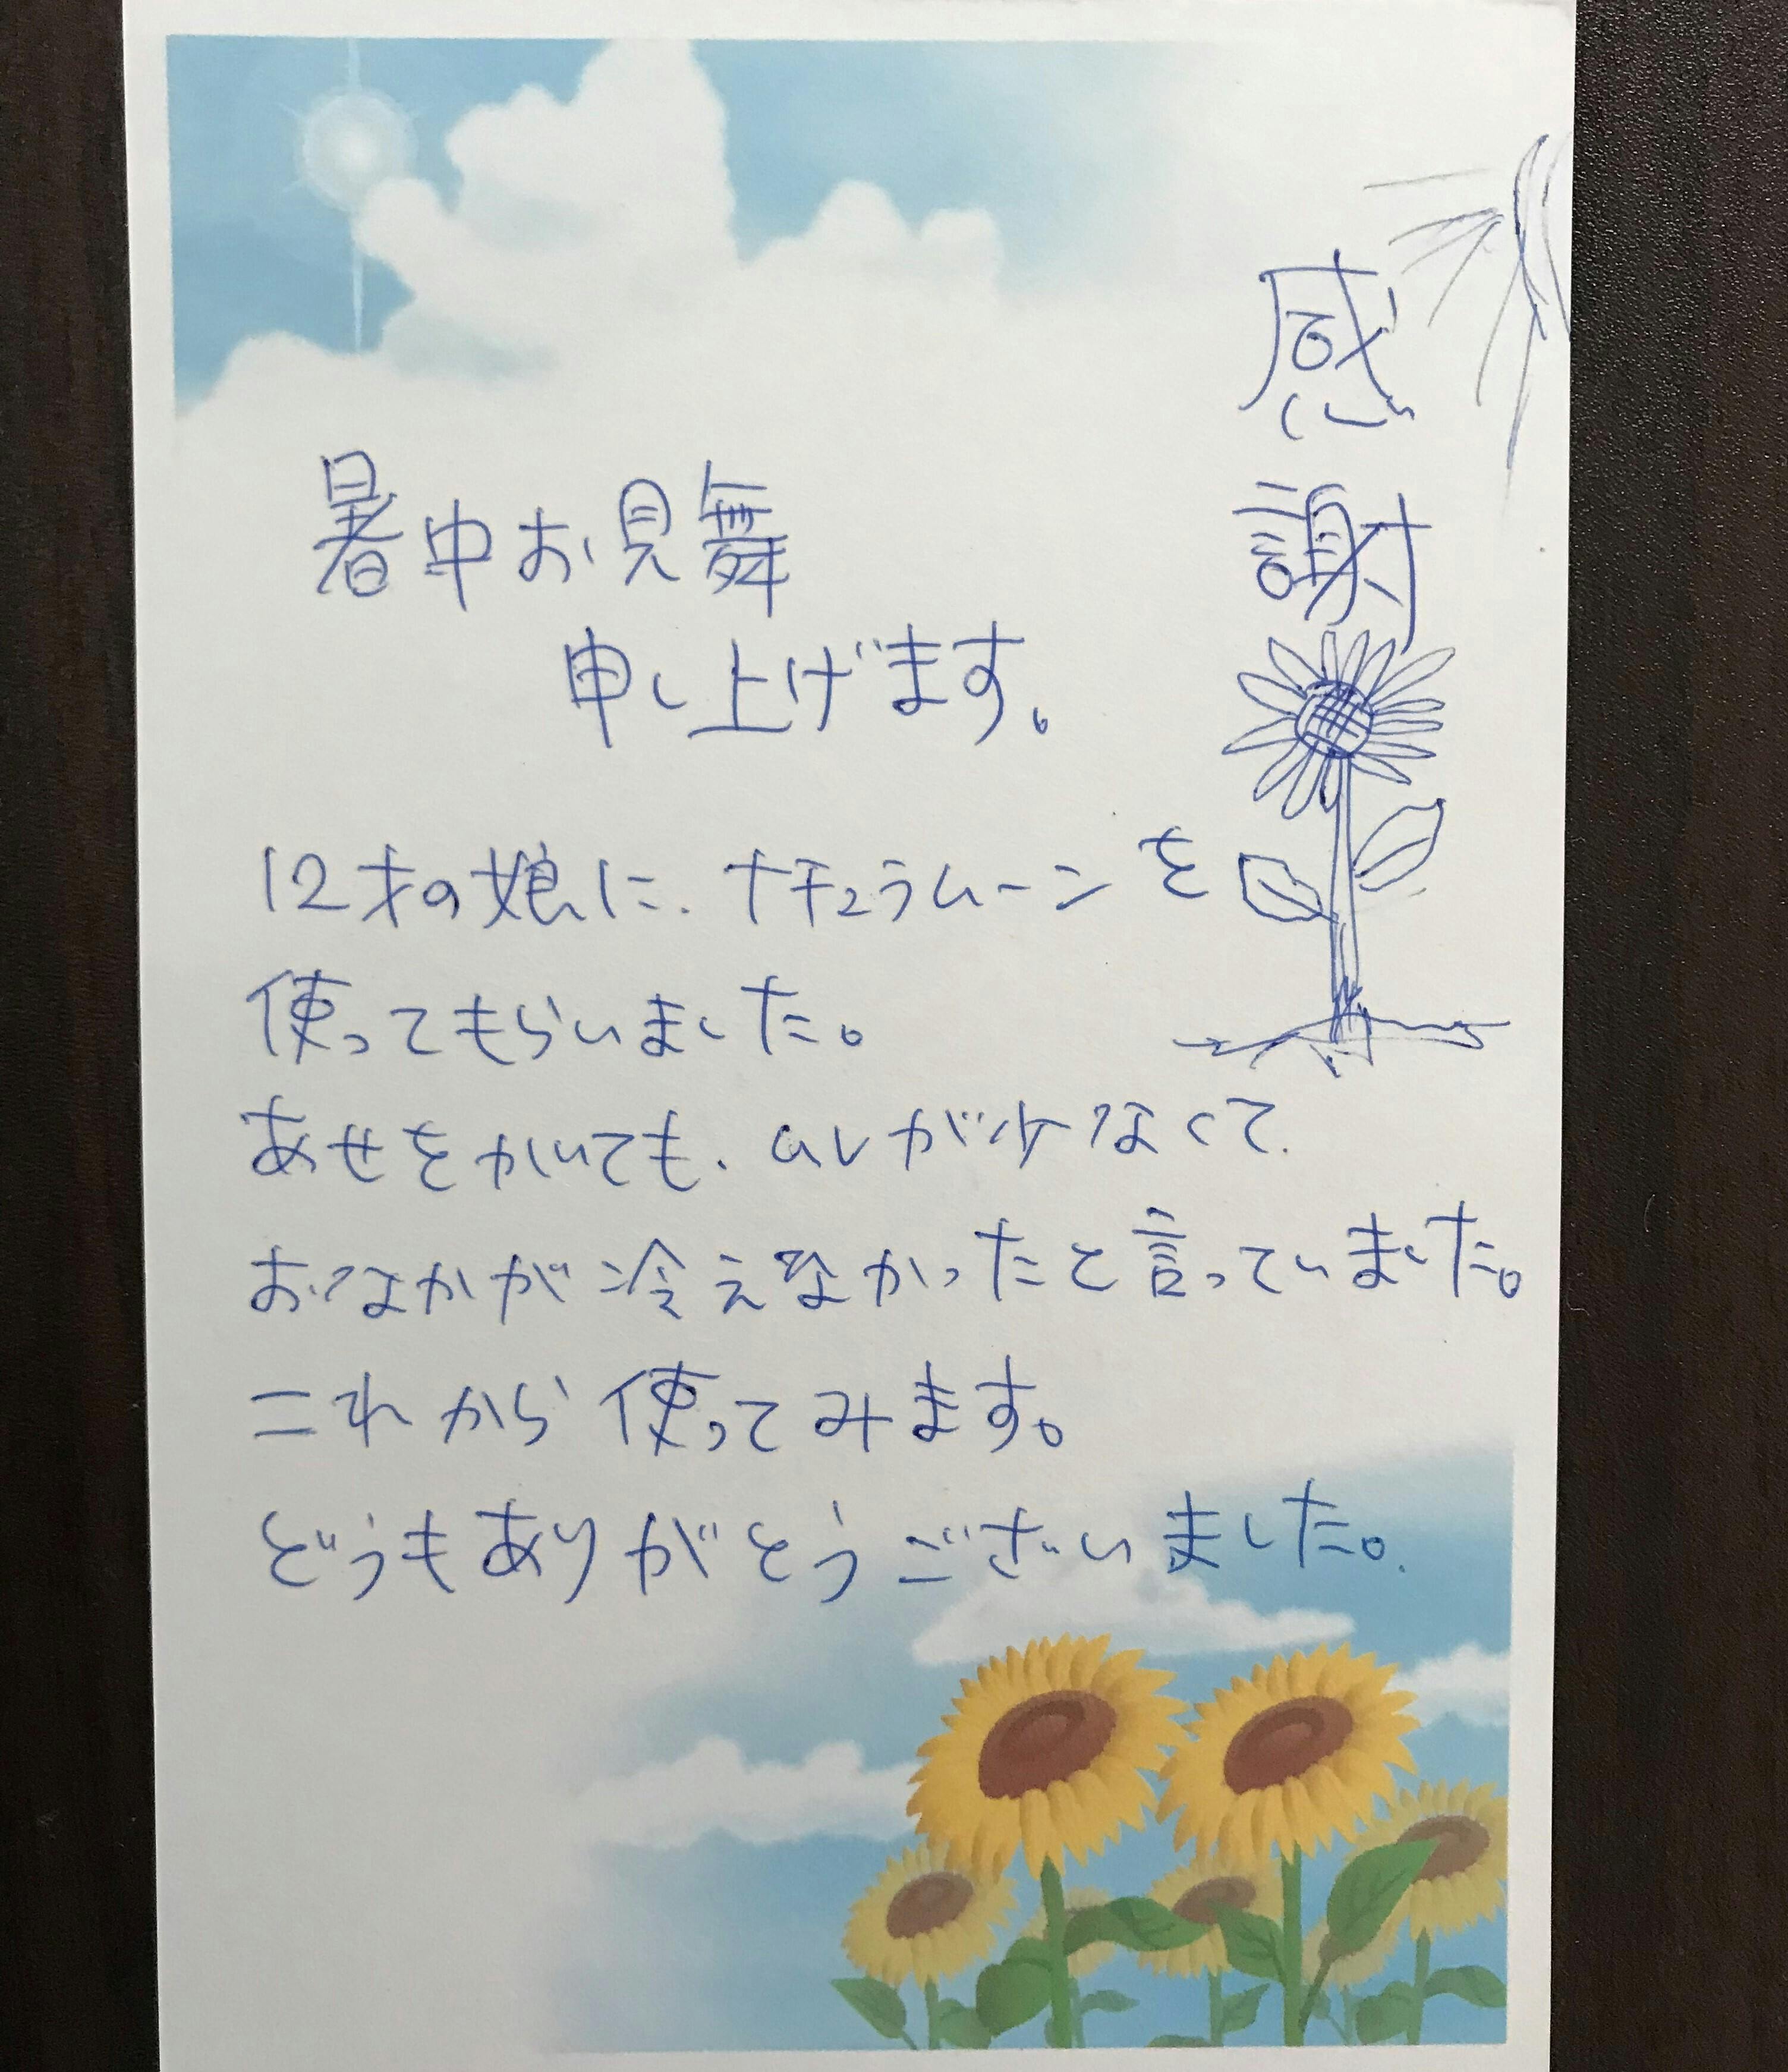 感謝
暑中お見舞
申し上げます。
12才の娘に、ナチュラムーンを
使ってもらいました。
あせをかいても、ムレが少なくて、
おなかが冷えなかったと言っていました。
これから使ってみます。
どうもありがとうございました。